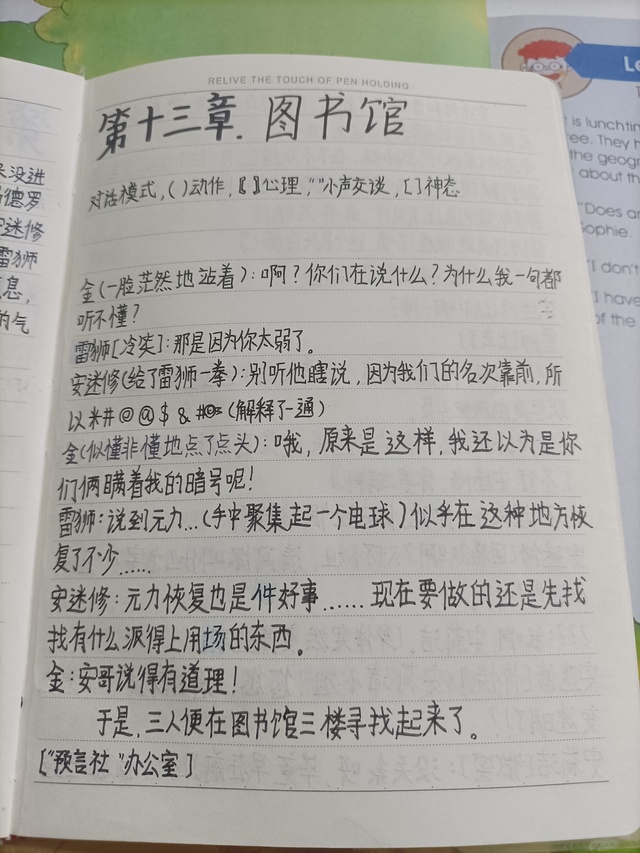 RELIVE THE TOUCH OF PEN HOLDING
第十三章.图书馆
对话模式,()动作,〖〗心理,“”小声交谈,[]神态
金(一脸茫然地站着):啊?你们在说什么?为什么我一句都
听不懂?
雷狮[冷笑]:那是因为你太弱了。
安迷修(给了雷狮一拳):别听他瞎说,因为我们的名次靠前,所
以米#@@$&#@*(解释了一通)
金(似懂非懂地点了点头):哦,原来是这样,我还以为是你
们俩瞒着我的暗号呢!
雷狮:说到元力...(手中聚集起一个电球)似乎在这种地方恢
复了不少......
安迷修:元力恢复也是件好事......现在要做的还是先找
找有什么派得上用场的东西。
金:安哥说得有道理!
于是,三人便在图书馆三楼寻找起来了。
[“预言社”办公室]
没进
德罗
迷修
雷狮
息,
的气
Le
is lunchtin
ee. They h
the geogr
about the
"Does a
ophie.
"I don't
I have
of the